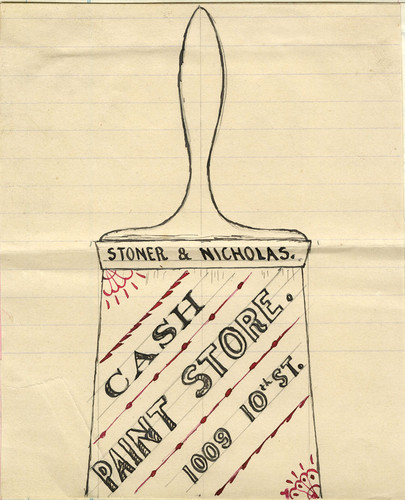 STONER & NICHOLAS.
CASH
PAINT STORE.
1009 10th ST.